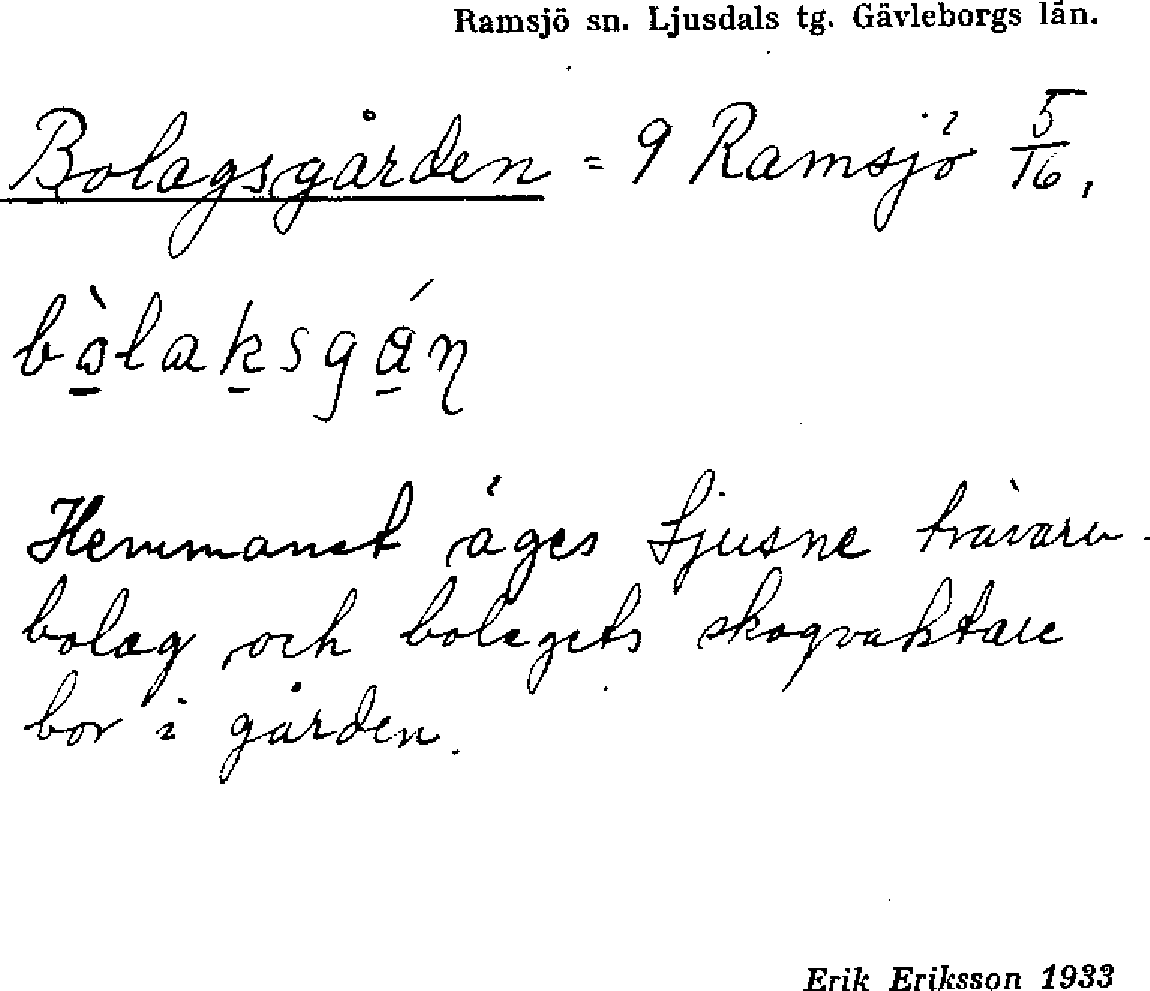 Ramsjö sn. Ljusdals tg. Gävleborgs län.
Bolagsgården = 9 Ramsjö 5/16,
bò̱lak̠sgá̱ɳ
Hemmanet äges Ljusne trävaru-
bolag och bolagets skogvaktare
bor i gården.
Erik Eriksson 1933